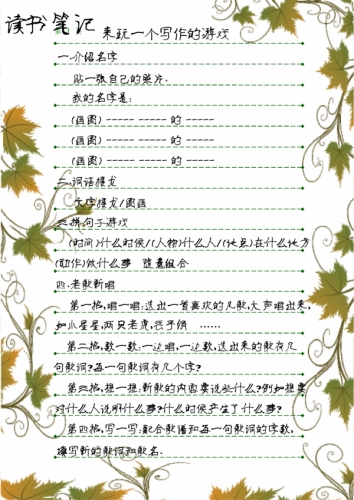 读书笔记
来玩一个写作的游戏
一.介绍名字
贴一张自己的照片.
我的名字是:
(画图) ----- ----- 的 -----
(画图) ----- ----- 的 -----
(画图) ----- ----- 的 -----
二.词语接龙
文字接龙/图画
三.拼句子游戏
(时间)什么时候/(人物)什么人/(地点)在什么地方
(动作)做什么事 随意组合
四.老歌新唱
第一招,唱一唱:选出一首喜欢的儿歌,大声唱出来,
如小星星,两只老虎,丢手绢 ……
第二招,数一数:一边唱,一边数,选出来的歌有几
句歌词?每一句歌词有几个字?
第三招,想一想:新歌的内容要说些什么?例如想要
对什么人说明什么事?什么时候产生了什么事?
第四招,写一写:配合歌谱和每一句歌词的字数,
填写新的歌词和歌名.